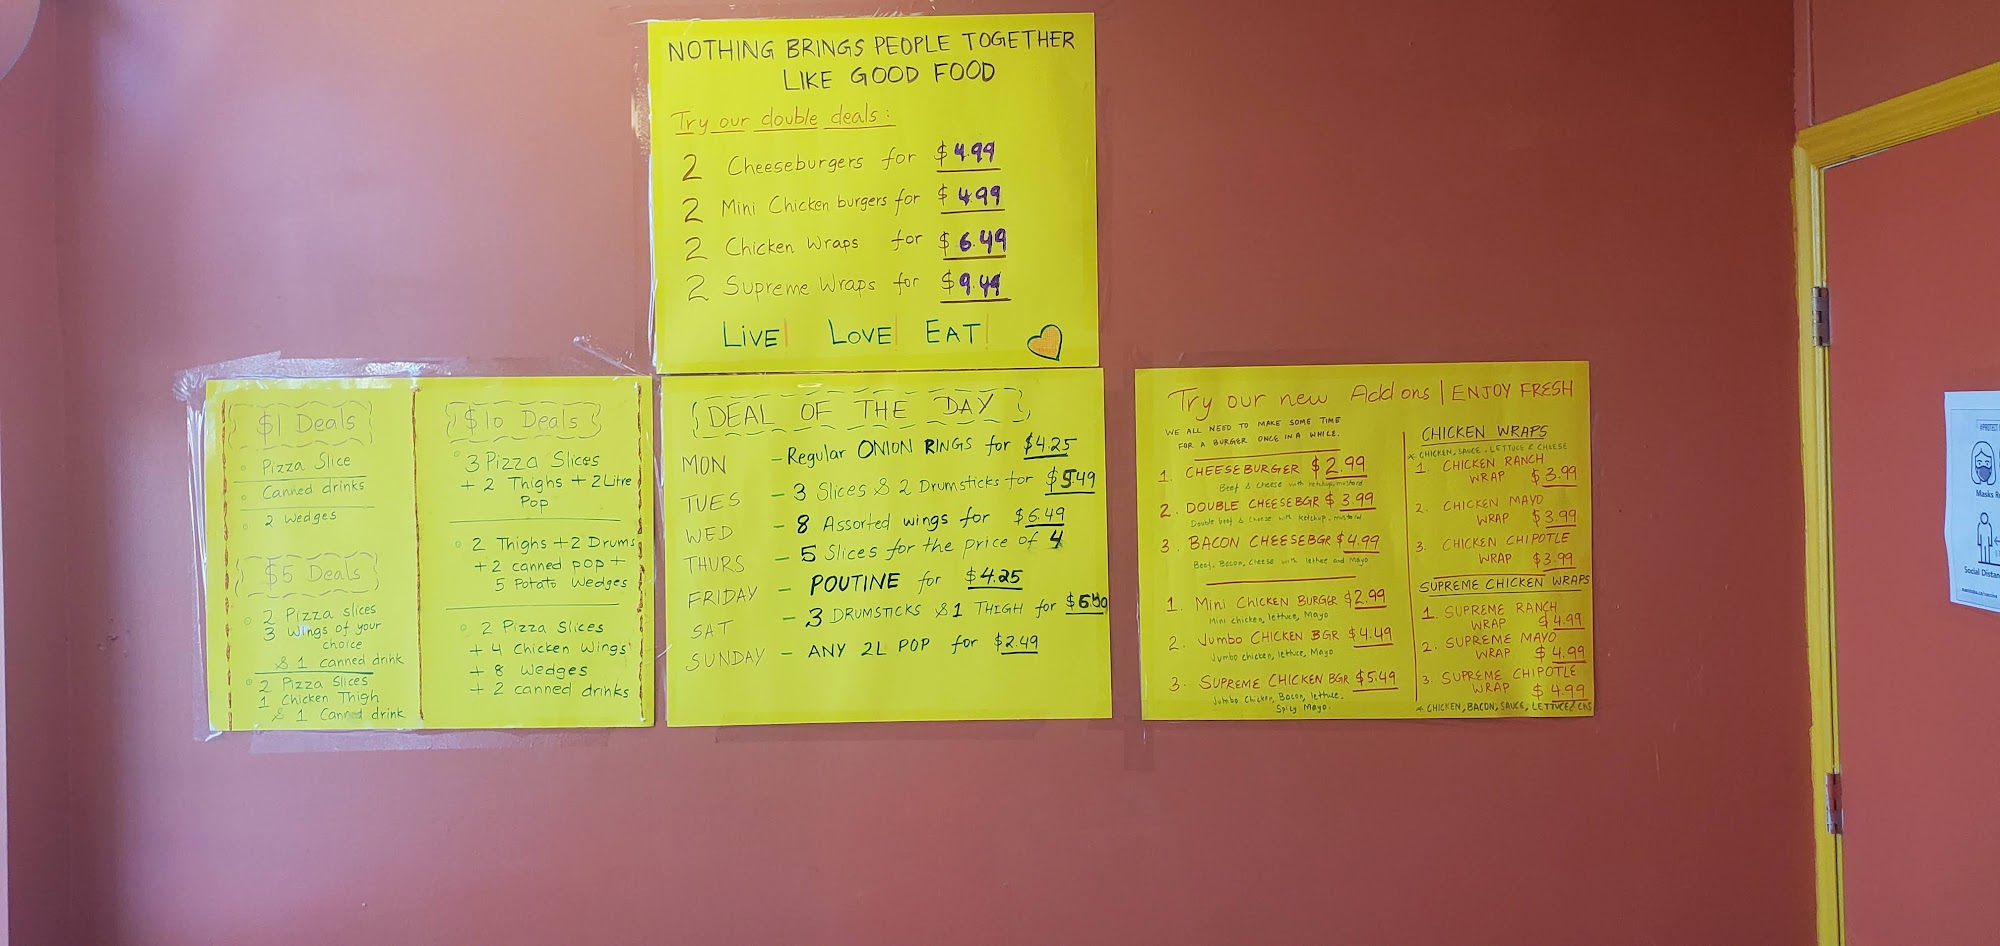 NOTHING BRINGS PEOPLE TOGETHER
LIKE GOOD FOOD
Try our double deals:
2 Cheeseburgers for $4.99
2 Mini Chicken burgers for $4.99
2 Chicken Wraps for $6.49
2 Supreme Wraps for $9.49
LiVE! LOVE! EAT!
$1 Deals
Pizza Slice
Canned drinks
2 Wedges
$5 Deals
2 Pizza slices
3 Wings of your
choice
& 1 canned drink
2 Pizza Slices
1 Chicken Thigh
& 1 Canned drink
$10 Deals
3 Pizza Slices
+ 2 Thighs + 2 Litre
Pop
2 Thighs + 2 Drums
+ 2 canned pop +
5 Potato Wedges
2 Pizza Slices
+ 4 Chicken Wings
+ 8 Wedges
+ 2 canned drinks
DEAL OF THE DAY
MON - Regular ONION RINGS for $4.25
TUES - 3 Slices & 2 Drumsticks for $5.49
WED - 8 Assorted wings for $6.49
THURS - 5 Slices for the price of 4
FRIDAY - POUTINE for $4.25
SAT - 3 DRUMSTICKS & 1 THIGH for
SUNDAY - ANY 2L POP for $2.49
Try our new Add ons | ENJOY FRESH
WE ALL NEED TO MAKE SOME TIME
FOR A BURGER ONCE IN A WHILE.
1. CHEESEBURGER $2.99
Beef & Cheese with ketchup, mustard
2. DOUBLE CHEESEBGR $3.99
Double beef & Cheese with ketchup, mustard
3. BACON CHEESEBGR $4.99
Beef, Bacon, Cheese with lettuce and Mayo
1. Mini CHICKEN BURGER $2.99
Mini chicken, lettuce, Mayo
2. Jumbo CHICKEN BGR $4.49
Jumbo chicken, lettuce, Mayo
3. SUPREME CHICKEN BGR $5.49
Jumbo Chicken, Bacon, lettuce,
Spicy Mayo.
CHICKEN WRAPS
* CHICKEN, SAUCE, LETTUCE & CHEESE
1. CHICKEN RANCH
WRAP $3.99
2. CHICKEN MAYO
WRAP $3.99
3. CHICKEN CHIPOTLE
WRAP $3.99
SUPREME CHICKEN WRAPS
1. SUPREME RANCH
WRAP $4.99
2. SUPREME MAYO
WRAP $4.99
3. SUPREME CHIPOTLE
WRAP $4.99
* CHICKEN, BACON, SAUCE, LETTUCE & CHS
#PROTECT
Masks R
Social Distan